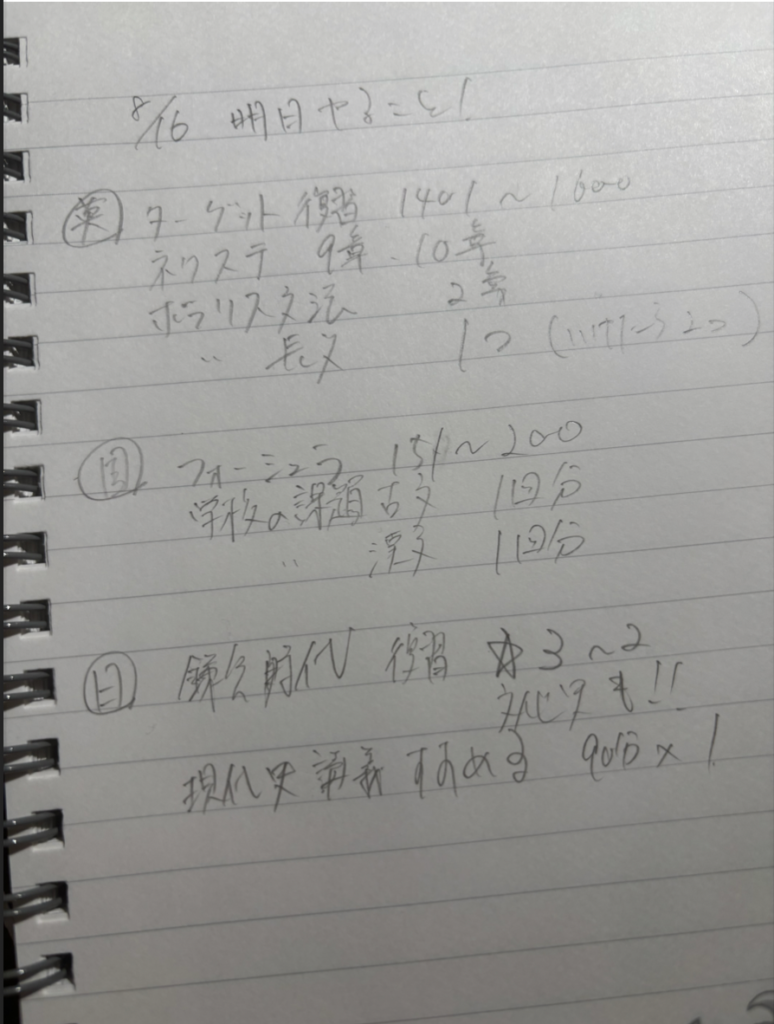 8/16 明日やること!
英 ターゲット 復習 1401～1600
ネクステ 9章、10章
ポラリス文法 2章
〃 長文 1つ (いけたら2つ)
国 フォーミュラ 151～200
学校の課題 古文 1回分
〃 漢文 1回分
日 鎌倉時代 復習 ☆3～2
文化史も!!
現代史 講義 すすめる 90分×1